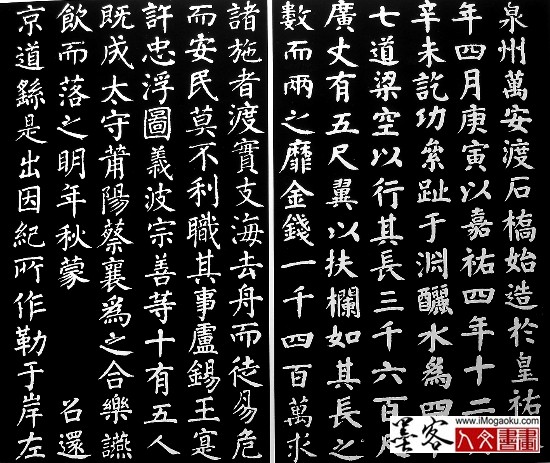 泉州萬安渡石橋始造於皇祐
年四月庚寅以嘉祐四年十二
辛未訖功絫趾于淵釃水爲四
七道梁空以行其長三千六百尺
廣丈有五尺翼以扶欄如其長之
數而兩之靡金錢一千四百萬求
諸施者渡實支海去舟而徙易危
而安民莫不利職其事盧錫王寔
許忠浮圖義波宗善等十有五人
既成太守莆陽蔡襄爲之合樂讌
飲而落之明年秋蒙 召還
京道繇是出因紀所作勒于岸左
www.iMogaoku.com
墨客